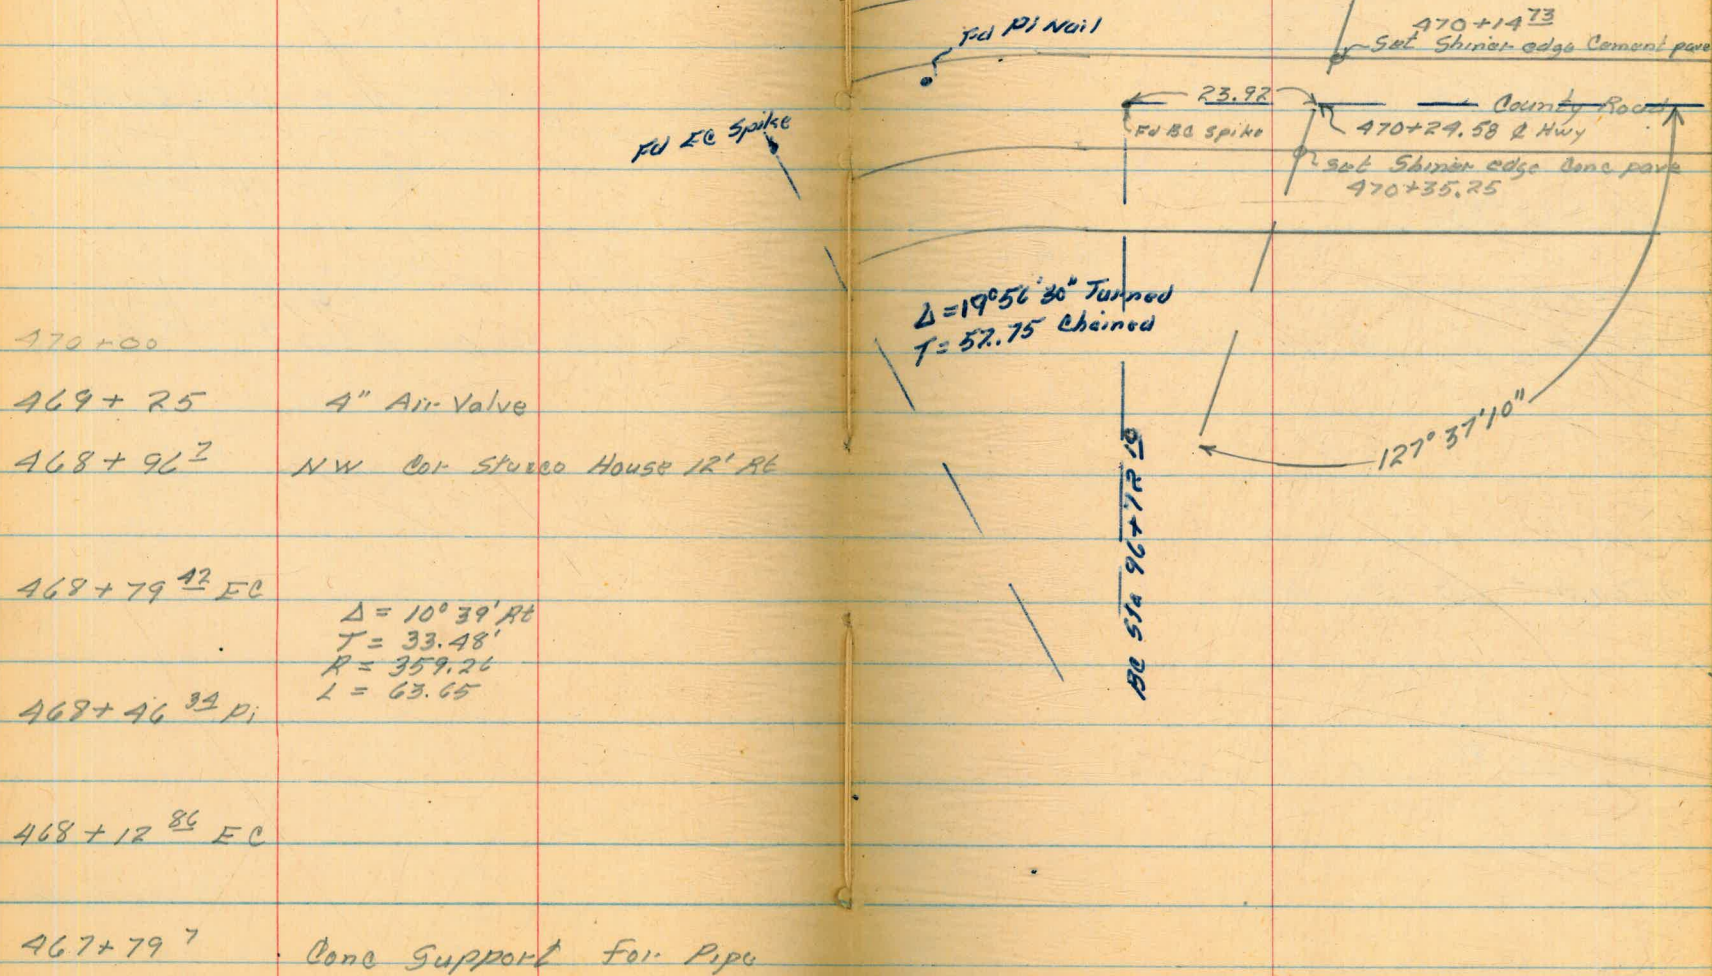 470+00
469+ 25 4" Air Valve
468 + 96 7 NW Cor Stucco House 12' Rt
468 + 79 42 EC
Δ = 10° 39' Rt
T = 33.48'
R = 359.26
L = 63.65
468+ 46 34 Pi
468 + 12 86 EC
467+ 79 7 Conc Support For Pipe
Fd EC Spike
Fd Pi Nail
470+14 73
Set Shiner edge Cement pave
23.92
County Road
Fd BC Spike
470+24.58 ℄ Hwy
Set Shiner edge Conc pave
470+35.25
Δ=19°56'30" Turned
T= 57.75 Chained
127° 37'10"
BC Sta 96+72 10